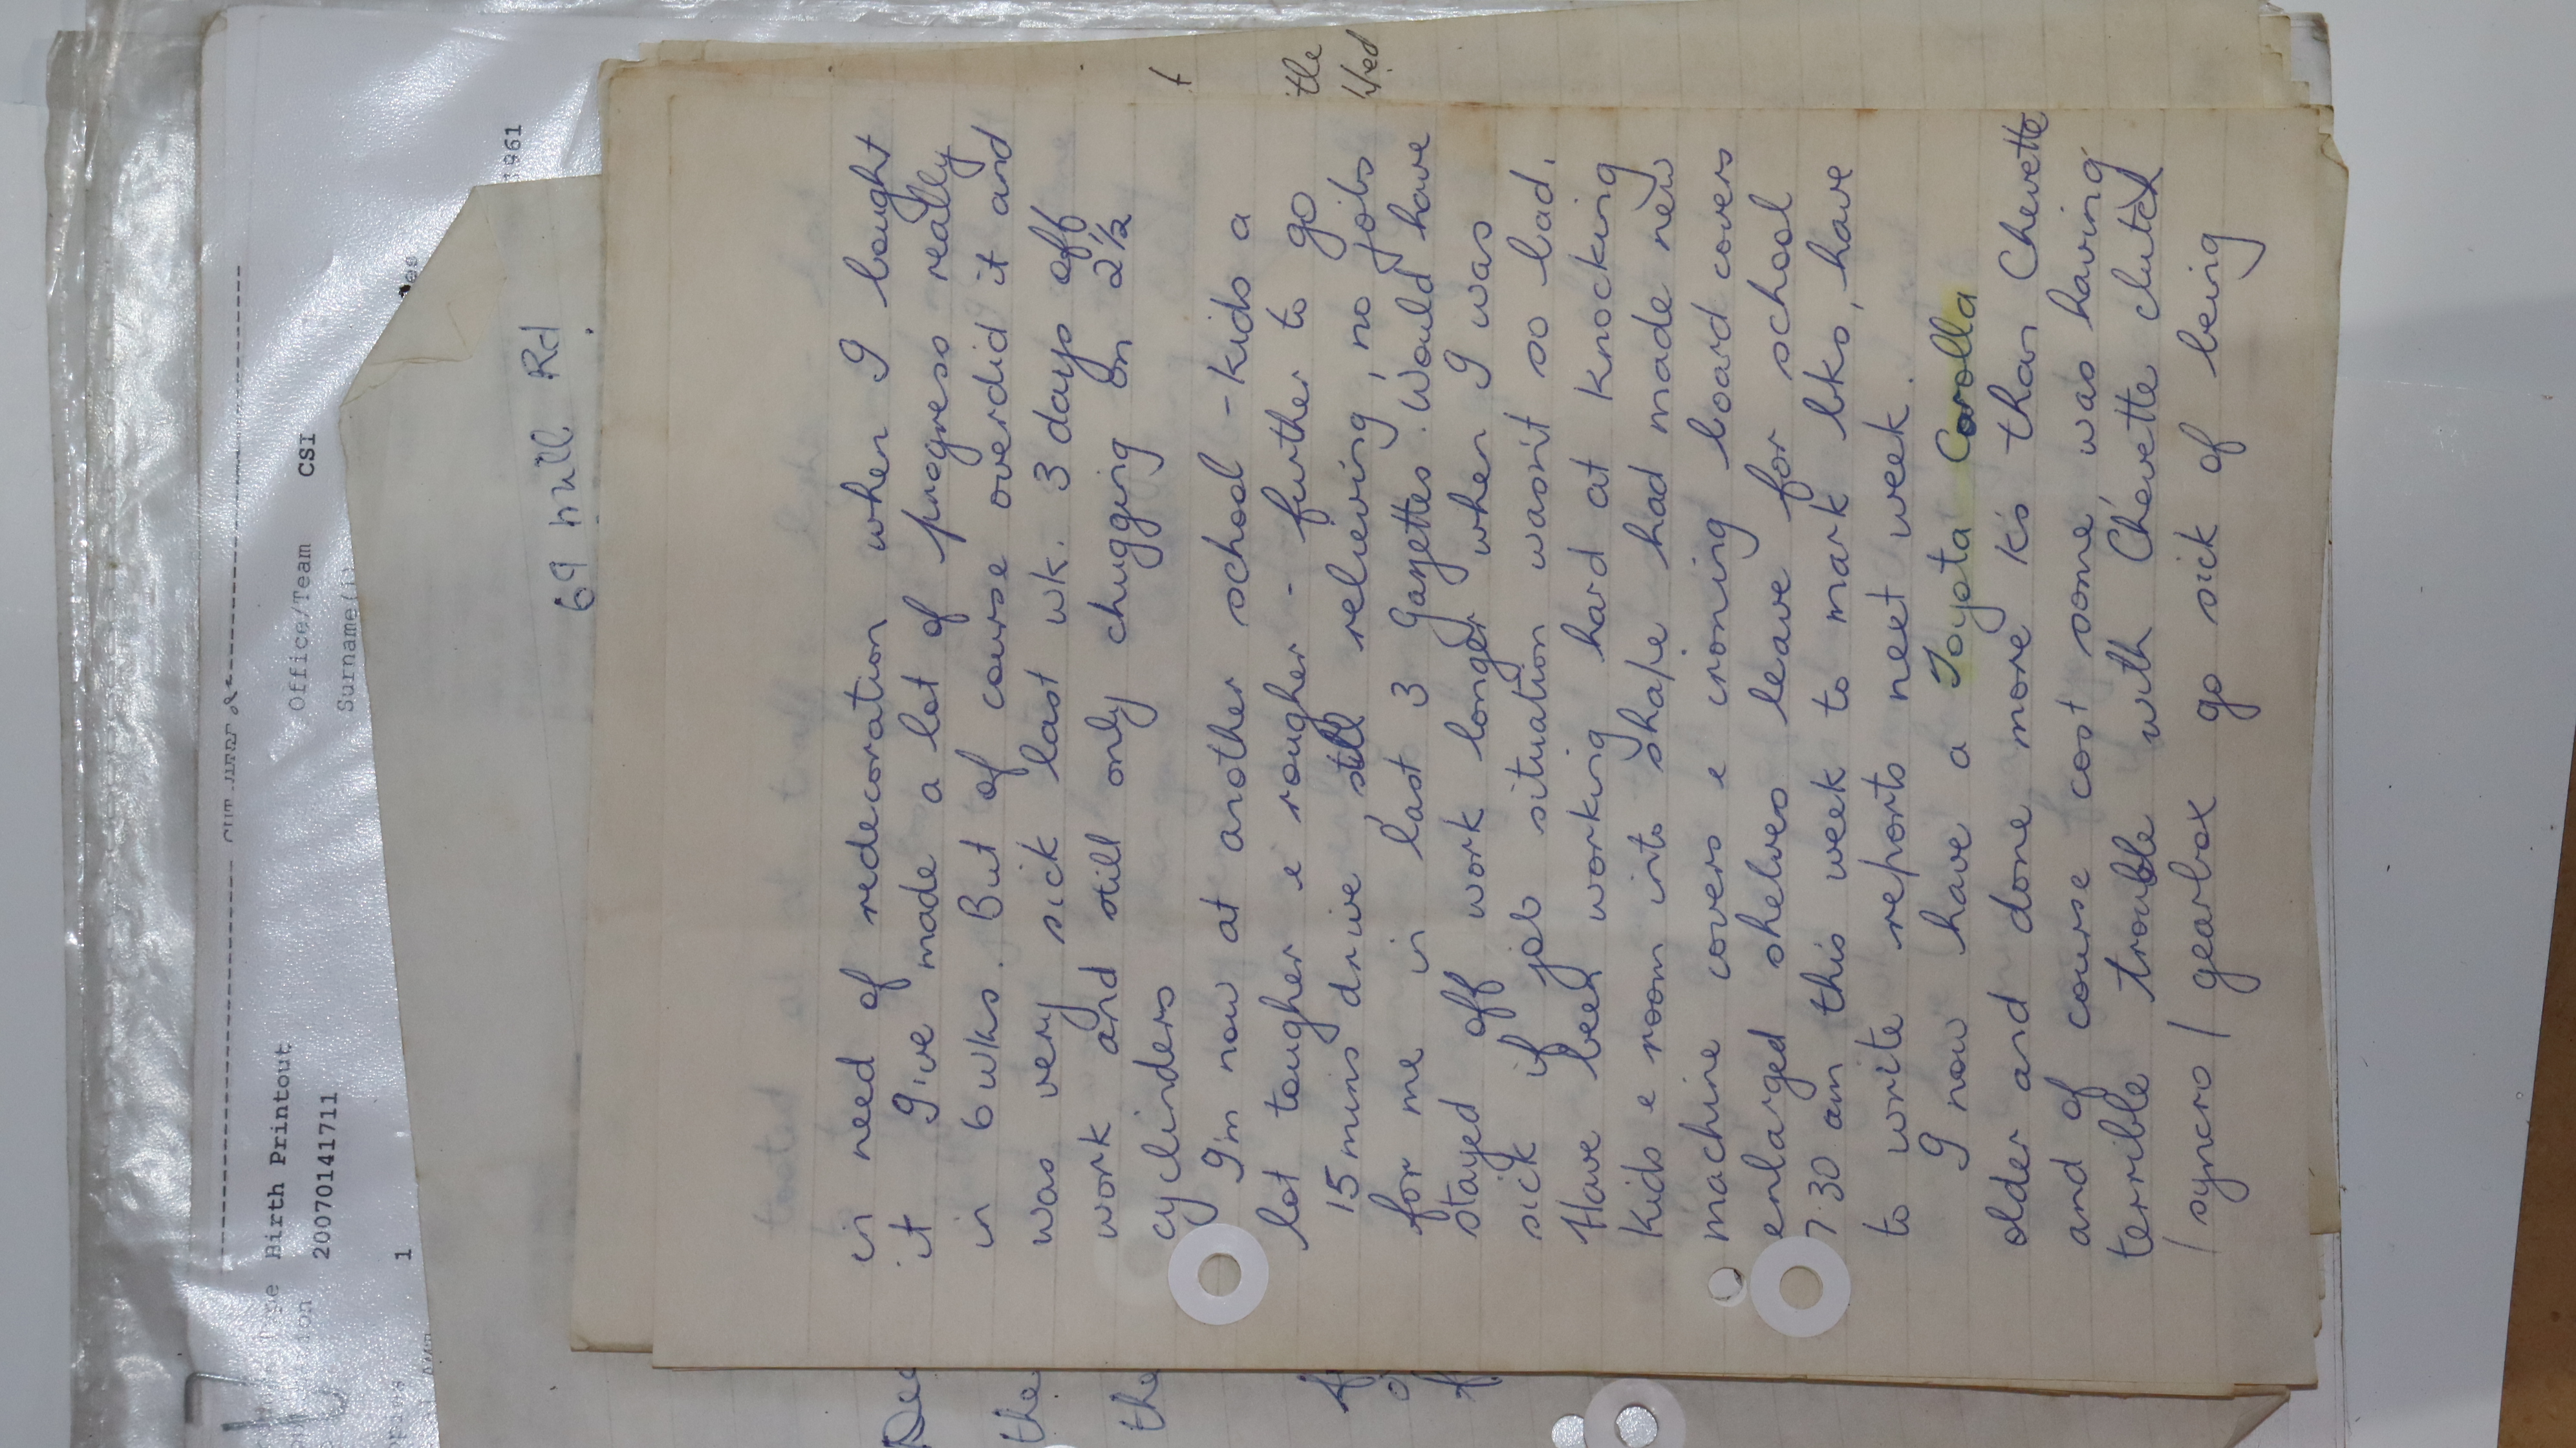 CSI
Office/Team
Surname(s)
Birth Printout
2007014 1711
1
961
69 Mill Rd
in need of redecoration when I bought
it I've made a lot of progress really
in 6 wks. But of course overdid it and
was very sick last wk. 3 days off
work and still only chugging on 2½
cylinders
I'm now at another school - kids a
lot tougher e rougher - further to go
15 mins drive still relieving, no jobs
for me in last 3 Gazettes. Would have
stayed off work longer when I was
sick if job situation wasn't so bad.
Have been working hard at knocking
kids e room into shape had made new
machine covers e ironing board covers
enlarged shelves leave for school
7.30 am this week to mark bks, have
to write reports next week.
I now have a Toyota Corolla
older and done more k's than Chevette
and of course cost some was having
terrible trouble with Chevette clutch
/ syncro / gearbox go sick of being
the
the
the